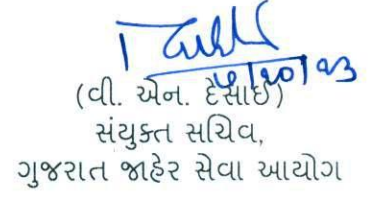 ૫/૧૦/૨૩
(વી. એન. દેસાઈ)
સંયુક્ત સચિવ,
ગુજરાત જાહેર સેવા આયોગ